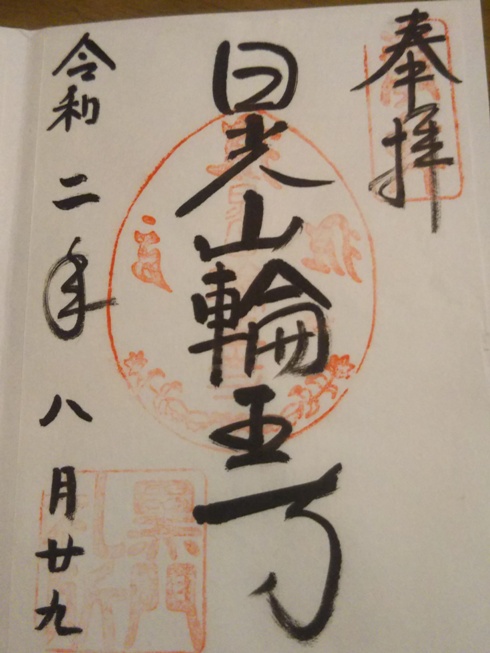 奉拝
日光山輪王寺
令和二年八月廿九
黒門